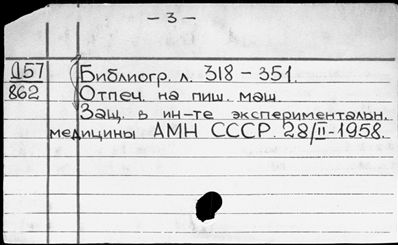 - 3 -
Д57
862
Библиогр. л. 318 - 351.
Отпеч. на пиш. маш.
Защ. в ин-те экспериментальн.
медицины АМН СССР. 28/II-1958.